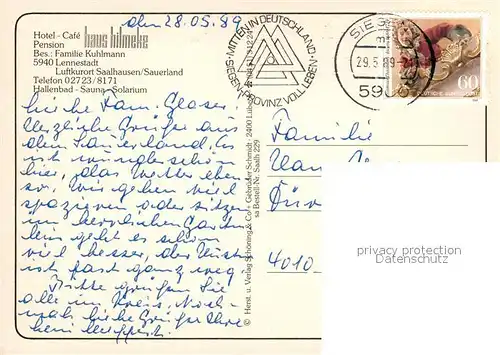 den 28.05.89
Hotel - Café haus hilmeke
Pension
Bes.: Familie Kuhlmann
5940 Lennestadt
Luftkurort Saalhausen/Sauerland
Telefon 02723/8171
Hallenbad - Sauna - Solarium
Liebe Fam. Glaser!
Herzliche Grüße aus
dem Sauerland. Es
ist wunderschön
hier, das Wetter eben
so. Wir gehen viel
spazieren oder sitzen
im herrlichen Garten
geht es schon
viel besser, der Husten
ist fast ganz weg.
Bitte grüßen Sie
alle im Kreis. Noch-
mals liebe Grüße Ihre
MITTEN IN DEUTSCHLAND
SIEGEN · PROVINZ VOLL LEBEN
SIEG
29.5.89
59
60
DEUTSCHE BUNDESPOST
© Herst. u. Verlag Schöning & Co + Gebrüder Schmidt · 2400 Lübeck
sa Bestell-Nr. Saalh 229
Familie
4010
privacy protection
Datenschutz